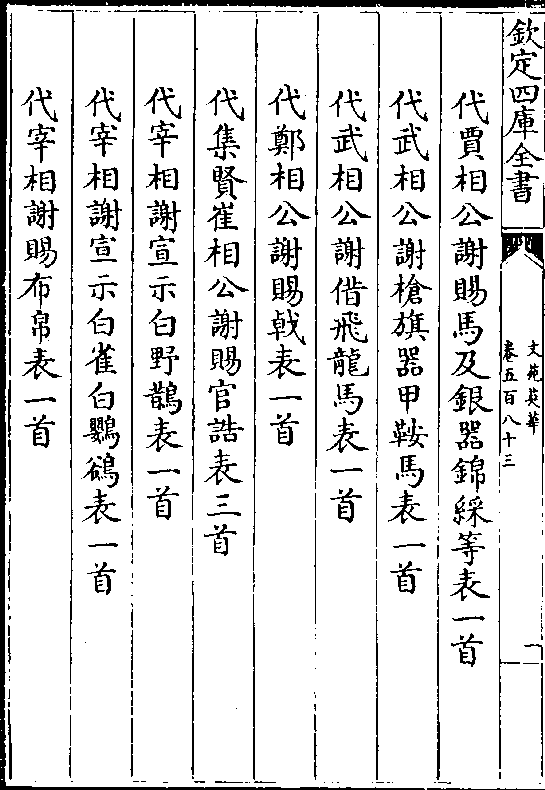 欽定四庫全書
文苑英華
卷五百八十三
一
代賈相公謝賜馬及銀器錦綵等表一首
代武相公謝槍旗器甲鞍馬表一首
代武相公謝借飛龍馬表一首
代鄭相公謝賜㦸表一首
代集賢崔相公謝賜官誥表三首
代宰相謝宣示白野鵲表一首
代宰相謝宣示白雀白鸚鵒表一首
代宰相謝賜布帛表一首